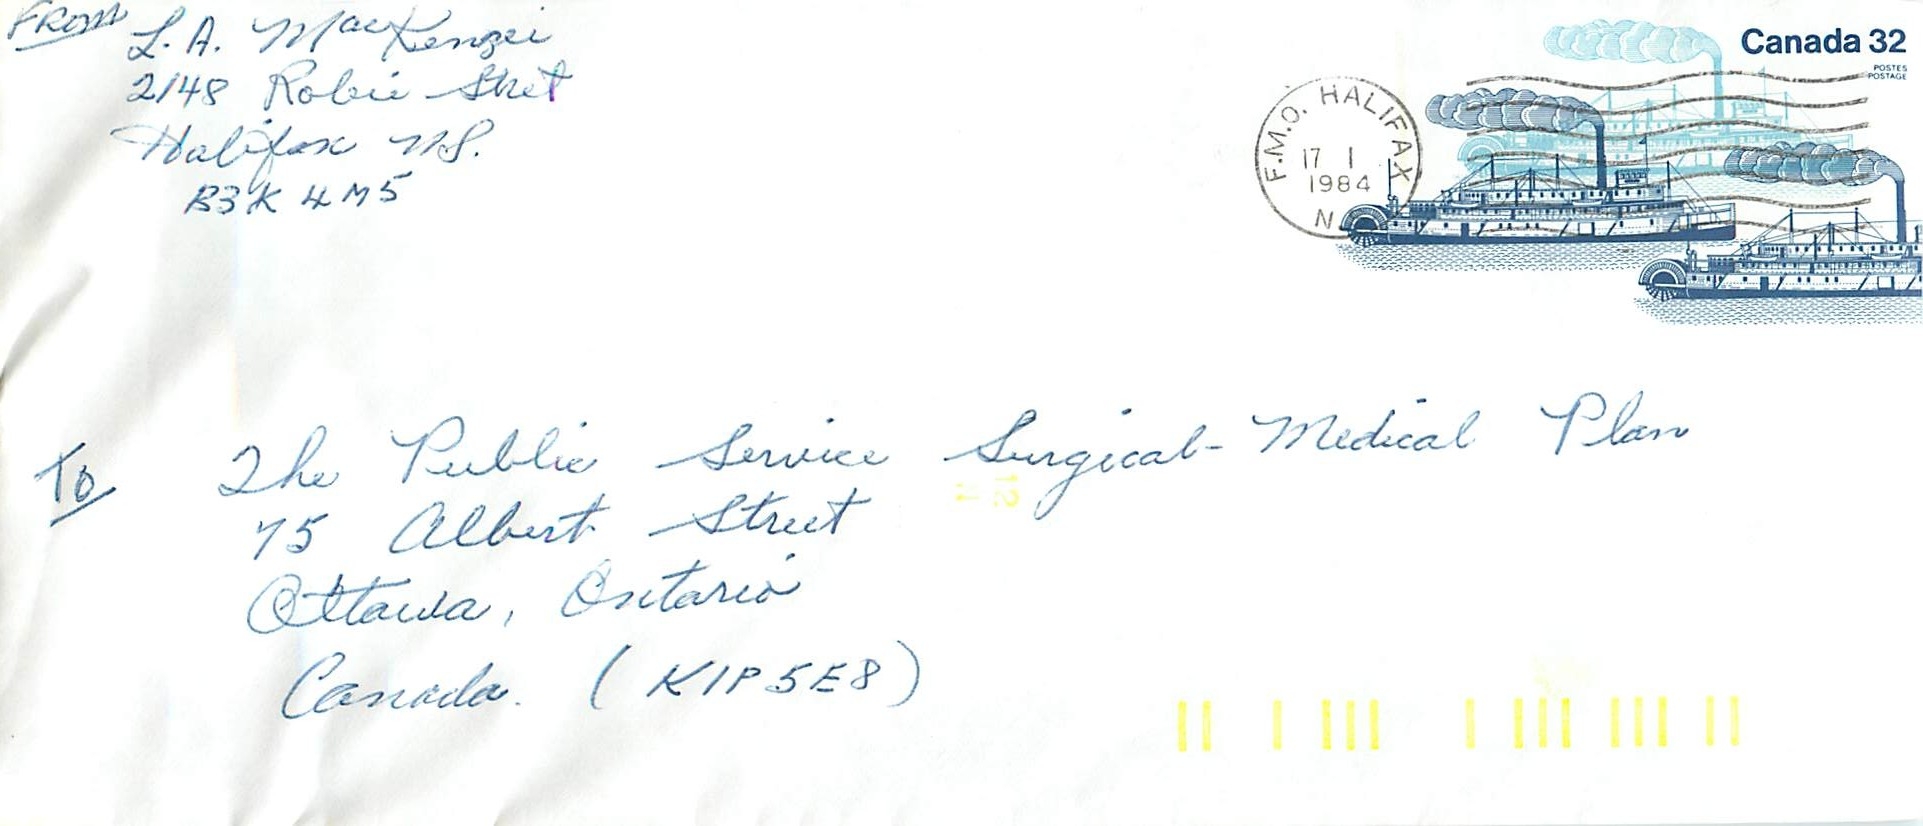 FROM L. A. MacKenzei
2148 Robie Stret
Halifax N.S.
B3K 4M5
Canada 32
POSTES
POSTAGE
F.M.O. HALIFAX
17 I
1984
N
To The Public Service Surgical-Medical Plan
75 Albert Street
Ottawa, Ontario
Canada. (K1P5E8)
12
11